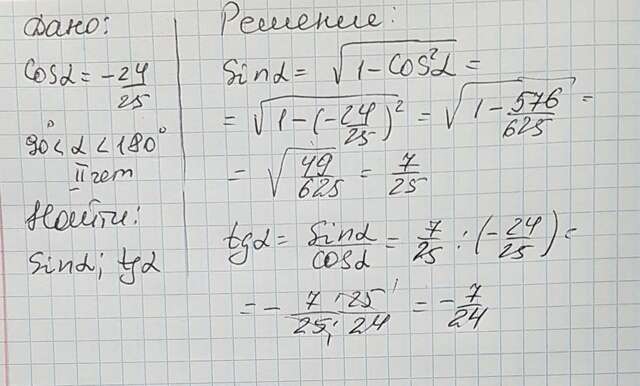 Дано:
cosα = -24/25
90° < α < 180°
II чет
Найти:
Sinα; tgα
Решение:
Sinα = √(1 - cos²α) =
= √(1 - (-24/25)²) = √(1 - 576/625) =
= √(49/625) = 7/25
tgα = Sinα/cosα = 7/25 : (-24/25) =
= - 7 · 25/25 · 24 = - 7/24